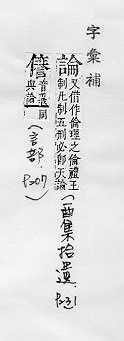 字彙補
論 又借作倫理之倫禮王制凡制五刑必卽天論 (酉集拾遺 P.31)
音義與論同 (言部 P.207)